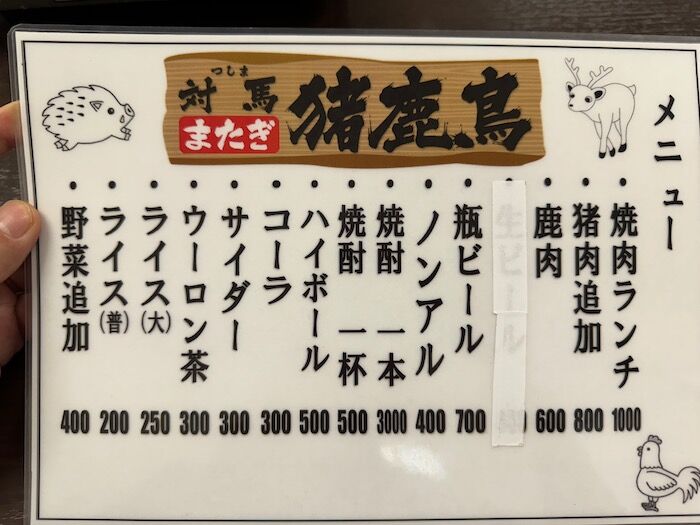 つしま
対馬
またぎ
猪鹿鳥
メニュー
・焼肉ランチ 1000
・猪肉追加 800
・鹿肉 600
・生ビール
・瓶ビール 700
・ノンアル 400
・焼酎 一本 3000
・焼酎 一杯 500
・ハイボール 500
・コーラ 300
・サイダー 300
・ウーロン茶 300
・ライス(大) 250
・ライス(普) 200
・野菜追加 400